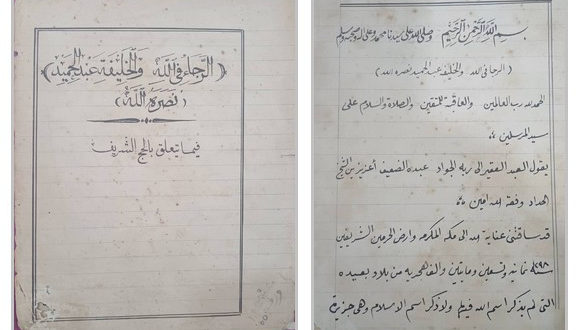 (الرجاء في الله والخليفة عبد الحميد)
(نصره الله)
فيما يتعلق بالحج الشريف
بسم الله الرحمن الرحيم وصلى الله على سيدنا محمد وعلى اله وصحبه وسلم
(الرجا في الله والخليفة عبد الحميد نصره الله)
الحمد لله رب العالمين والعاقبة للمتقين والصلاة والسلام على
سيد المرسلين
يقول العبد الفقير الى ربه الجواد عبده الضعيف اعزيز بن الشيخ
الحداد وفقه الله امين
قد ساقتني عناية الله الى مكه المكرمه وارض الحرمين الشريفين
١٢٩٨ ثمانيه وتسعين ومايتين والف هجريه من بلاد بعيده
التي لم يذكر اسم الله فيها ولا ذكر اسم الاسلام وهي جزيرة